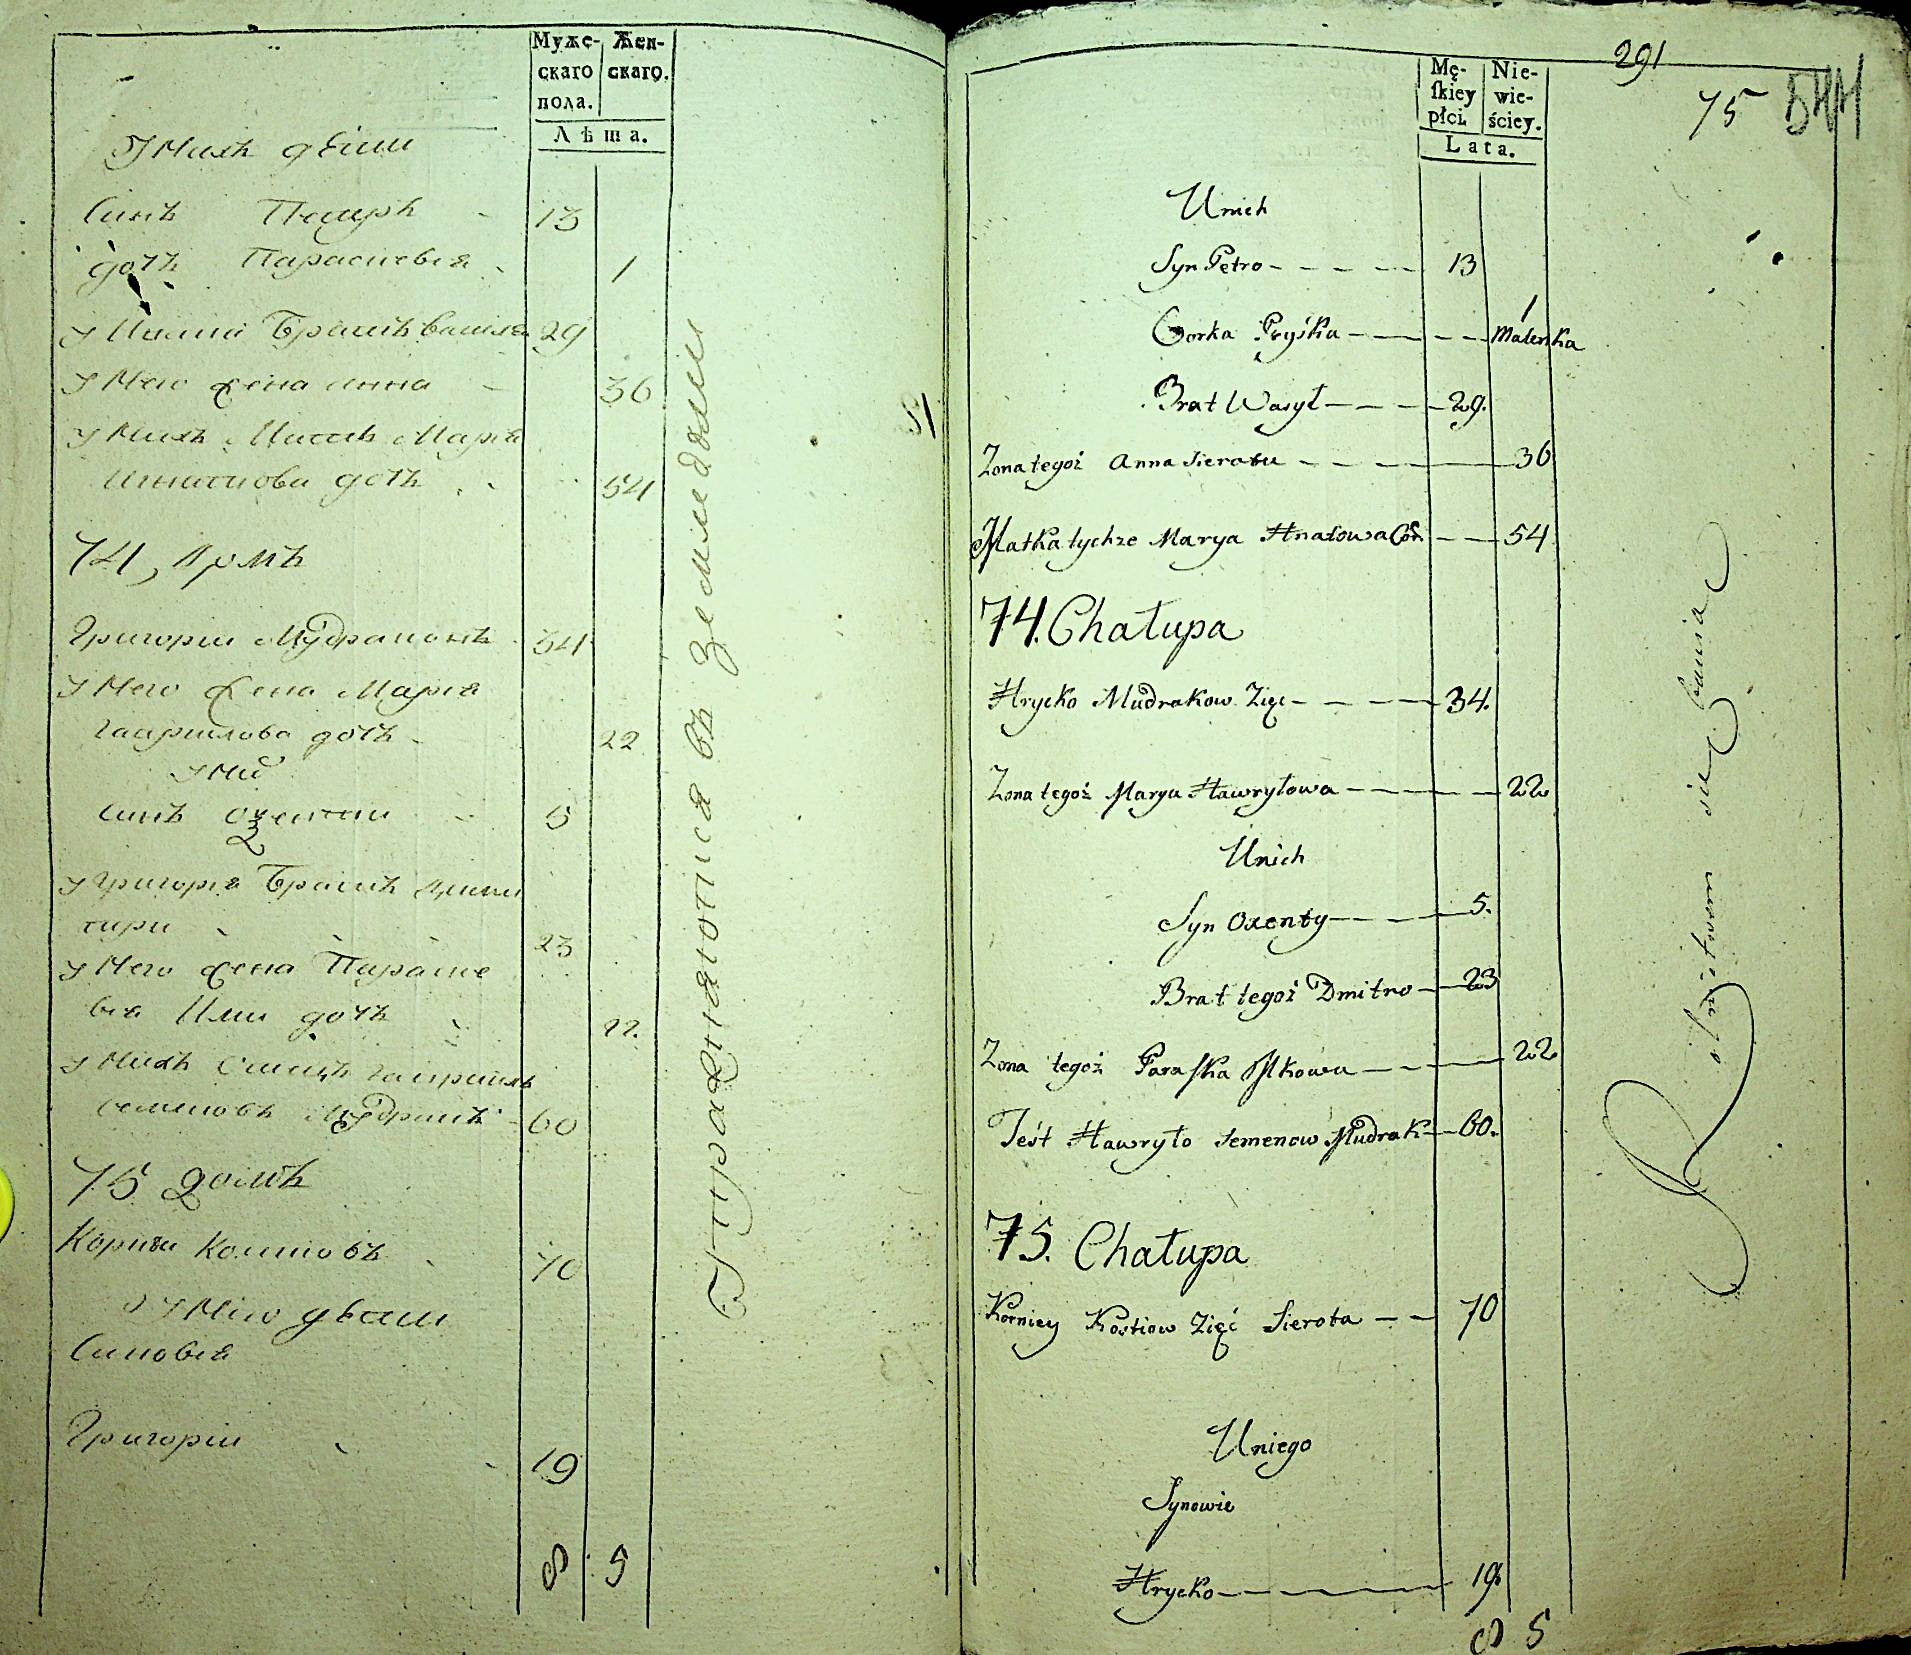 Муже-
скаго
пола.
Жен-
скаго.
Лѣта.
У нихъ дѣти
Синъ Петръ 13
дочъ Парасковья 1
У Ивана братъ Василь 29
У Него жена Анна 36
У Нихъ Матъ Марія
Игнатова дочъ 54
74, Домъ
Григорій Мудраковъ 34
У Него жена Марія
Гаврилова дочъ 22
У Них
синъ 5
У Григорія братъ Дими
трій 23
У Него жена Параске
вія дочъ 22.
У Нихъ Гаврилъ
семеновъ Мудракъ 60
75 домъ
Корній Костювъ 70
У Него дѣти
Синовья
Григорій 19
8 5
Упражняются въ земледелии
291
75
Mę-
skiey
płci.
Nie-
wie-
ściey.
Lata.
Unich
Syn Petro 13
Corka Pryśka 1 Malenka
Brat Wasyl 29.
Zona tegoż Anna Sierotu 36
Matka tychze Marya Hnatowa Cor. 54
74. Chałupa
Hrycko Mudrakow Zięc 34.
Zona tegoż Marya Hawryłowa 22
Unich
Syn Oxenty 5.
Brat tegoż Dmitro 23
Zona tegoż Paraska Ilkowa 22
Teśt Hawryło Semenow Mudrak 60.
75. Chałupa
Korniey Kostiow Zięć Sierota 70
Uniego
Synowie
Hrycko 19.
8 5
Rolnictwem się bawią